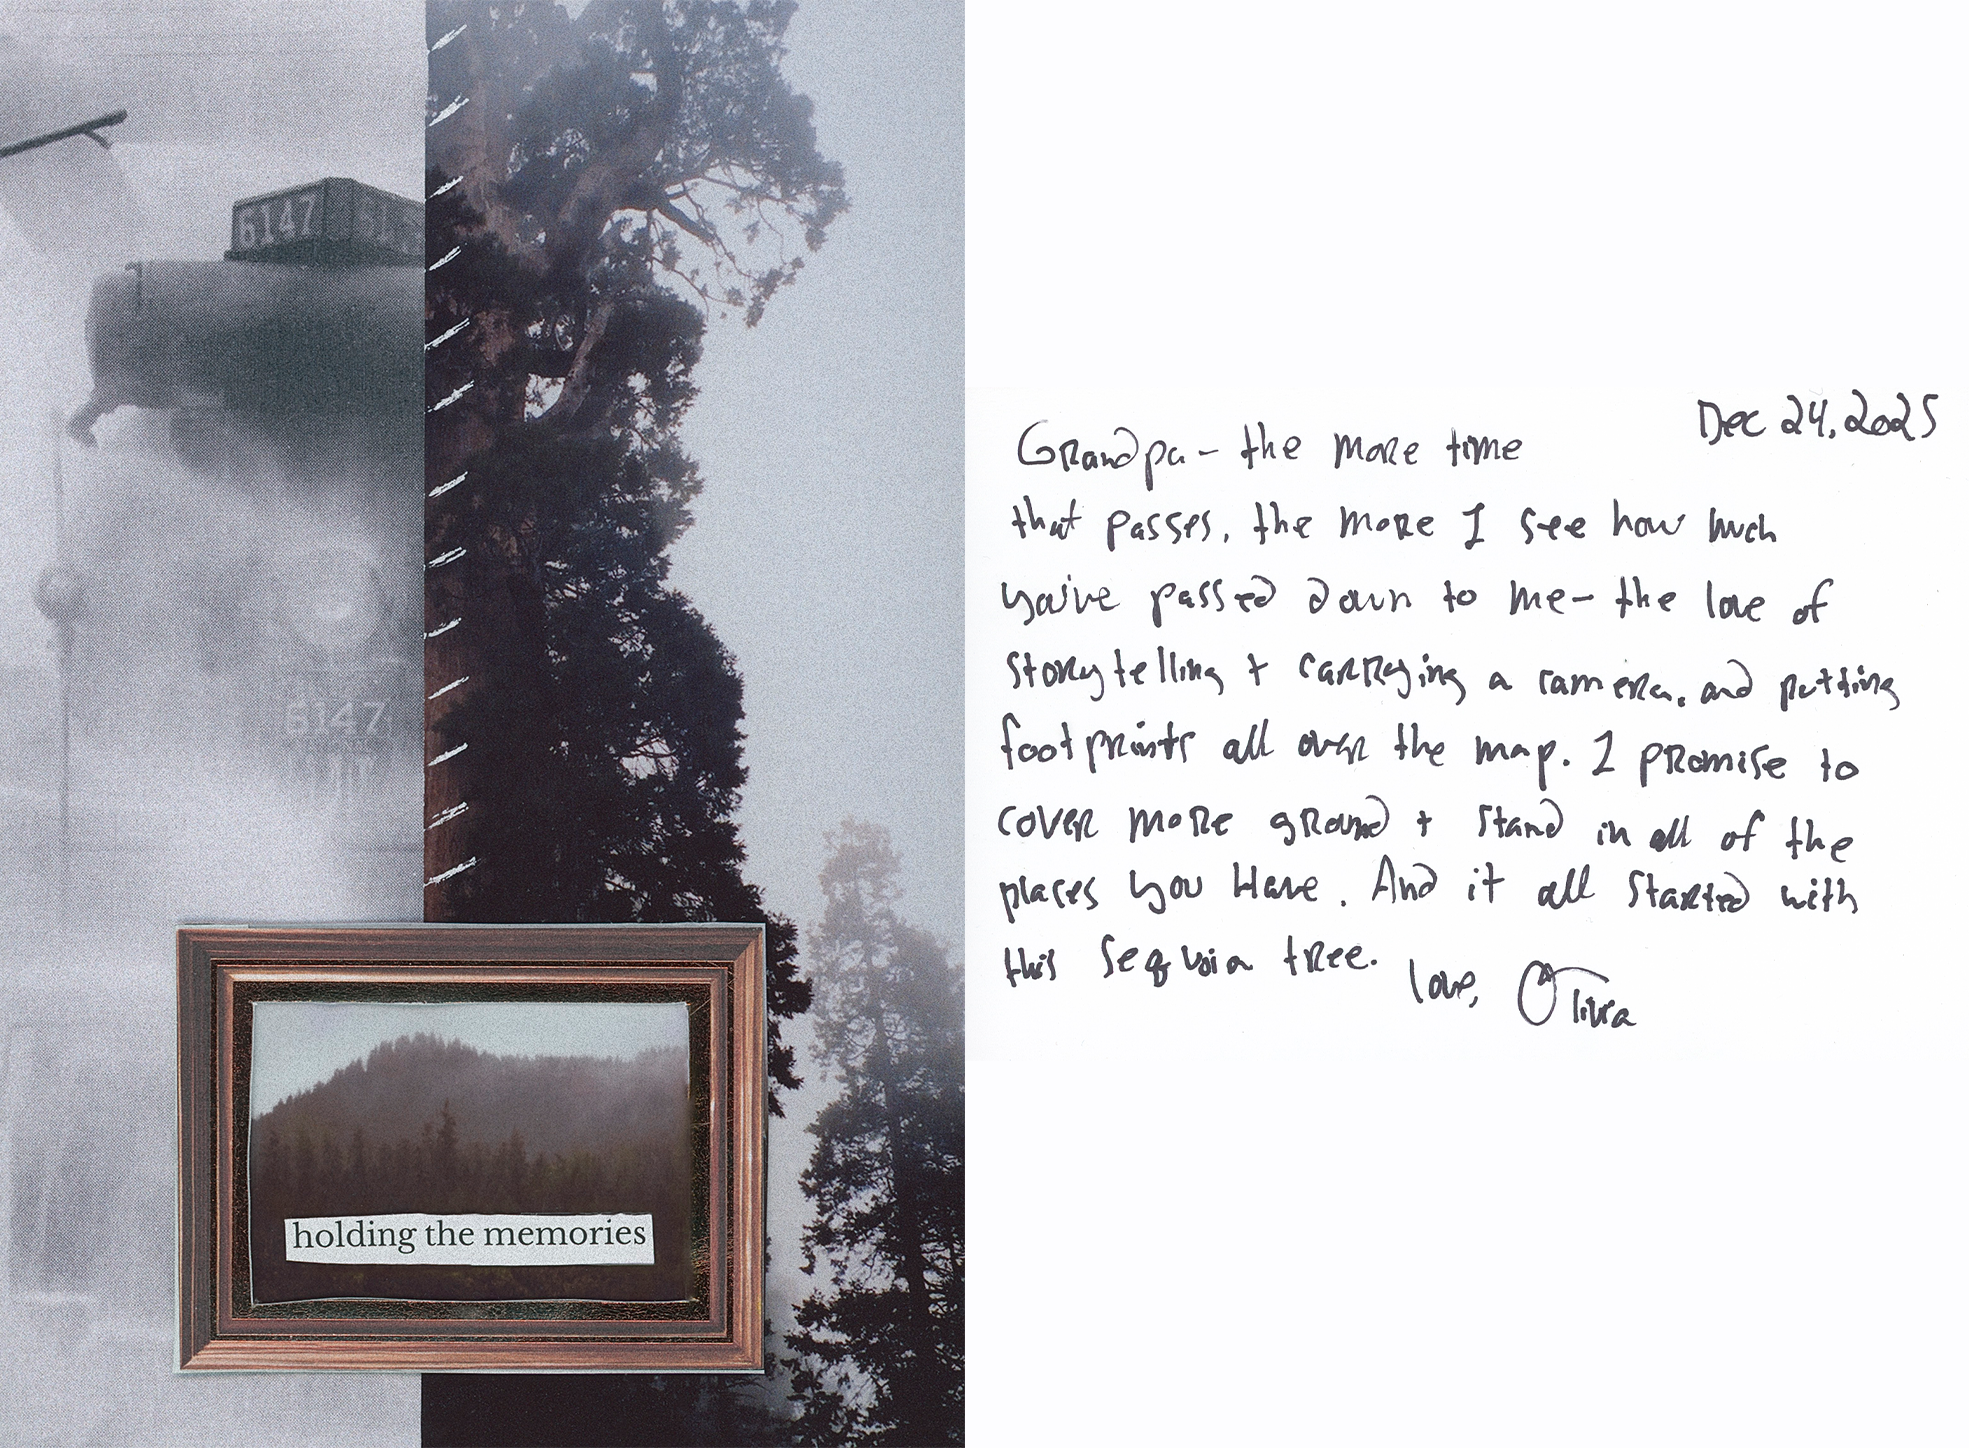 6147
6147
holding the memories
Dec 24, 2025
Grandpa - the more time
that passes, the more I see how much
you've passed down to me - the love of
storytelling + carrying a camera, and putting
footprints all over the map. I promise to
cover more ground + stand in all of the
places you have. And it all started with
this Sequoia tree.
love, Olivia